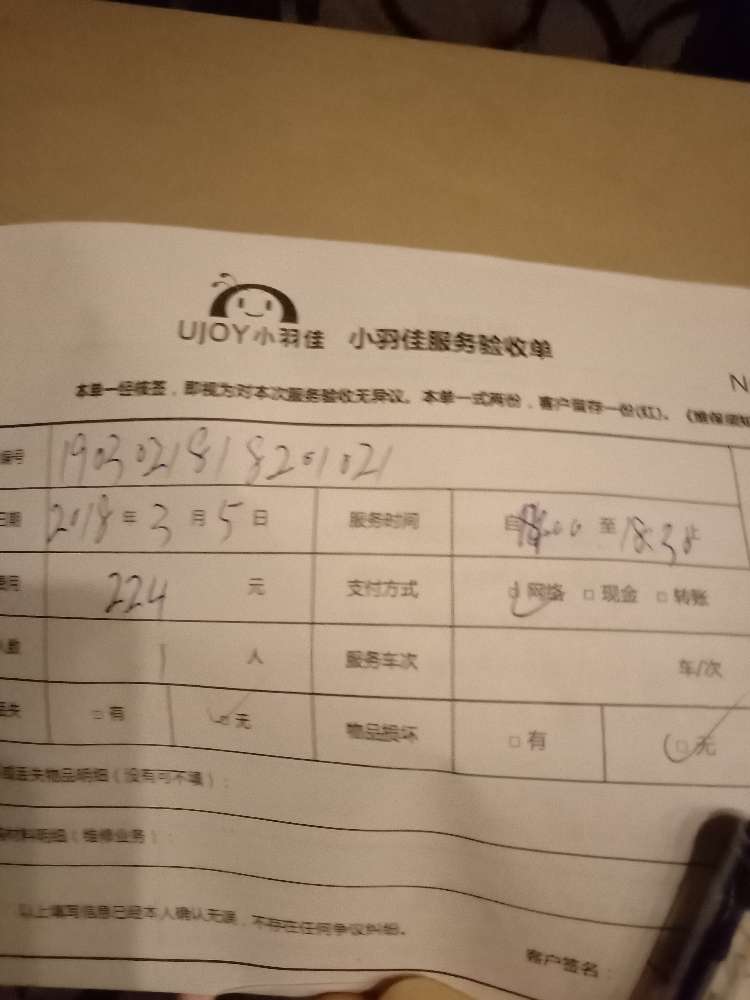 UJOY小羽佳 小羽佳服务验收单
N
本单一经核签，即视为对本次服务验收无异议。本单一式两份，客户留存一份(红)。
编号 1903021818201021
日期 2018年3月5日 服务时间 自 至18:30止
费用 224元 支付方式 网络 □现金 □转账
人数 1人 服务车次 车/次
丢失 □有 □无 物品损坏 □有 □无
或丢失物品明细（没有可不填）：
材料明细（维修业务）：
以上填写信息已经本人确认无误，不存在任何争议纠纷。
客户签名：